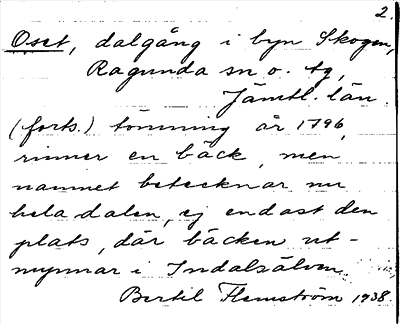 2.
Oset, dalgång i byn Skogen,
Ragunda sn o. tg,
Jämtl. län.
(forts.) tömning år 1796,
rinner en bäck, men
namnet betecknar nu
hela dalen, ej endast den
plats, där bäcken ut-
mynnar i Indalsälven.
Bertil Flemström 1938.